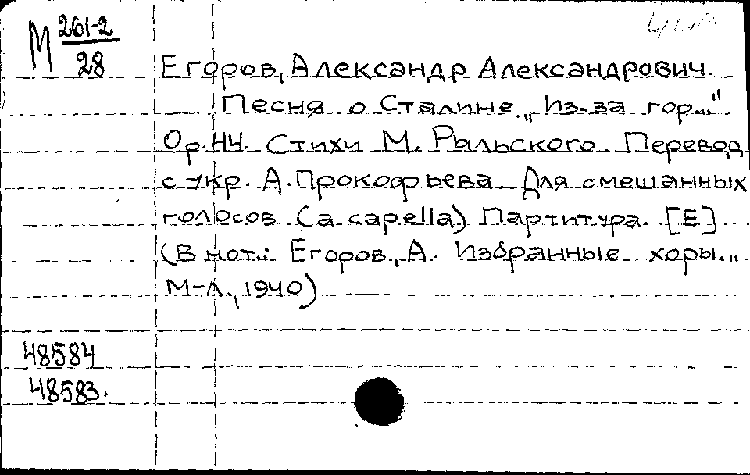 М 261-2
28
Егоров, Александр Александрович.
Песня о Сталине „Из-за гор..."
Ор. 44. Стихи М. Рыльского. Перевод
с укр. А. Прокофьева. Для смешанных
голосов (a capella) Партитура. [Е]
(В нот.: Егоров, А. Избранные хоры..
М-Л., 1940)
48584
48583.